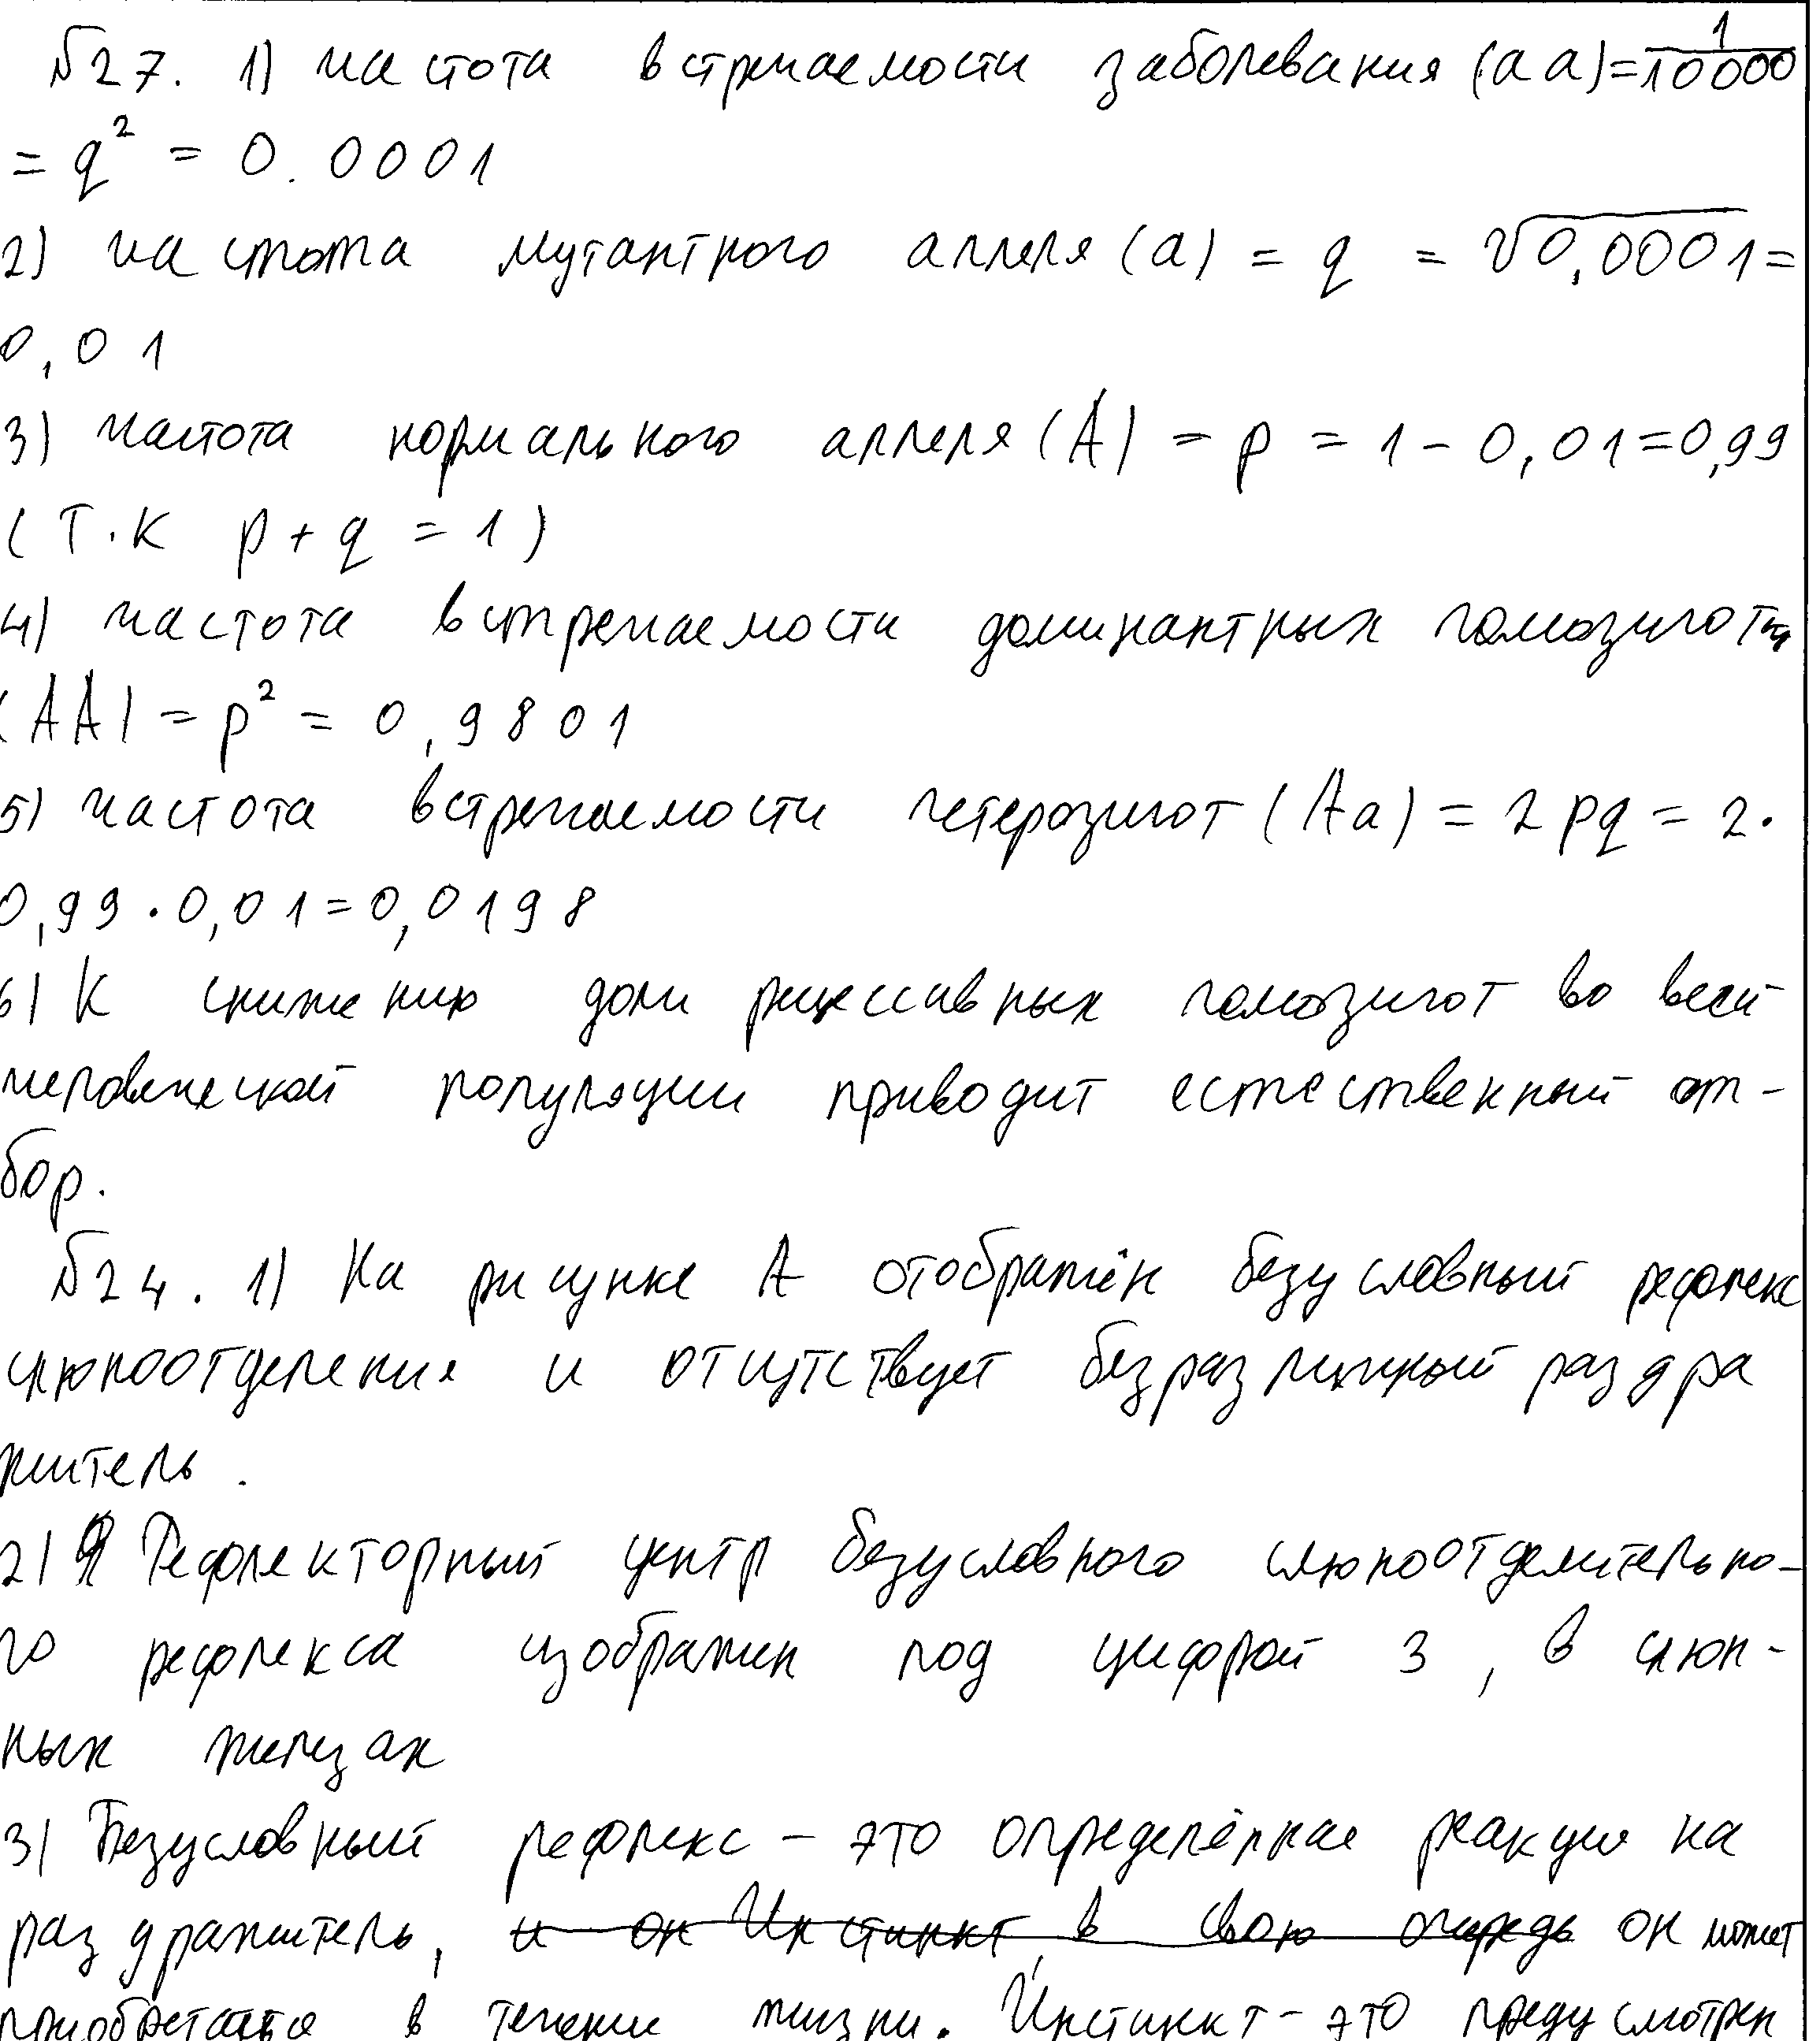 №27. 1) частота встречаемости заболевания (аа)=1/10000
= q² = 0.0001
2) частота мутантного аллеля (а) = q = √0,0001=
0,01
3) частота нормального аллеля (А) = p = 1-0,01=0,99
(т.к p+q = 1)
4) частота встречаемости доминантных гомозигот
(АА) = p² = 0,9801
5) частота встречаемости гетерозигот (Аа) = 2pq = 2·
0,99·0,01=0,0198
6) К снижению доли рецессивных гомозигот во всей
человеческой популяции приводит естественный от-
бор.
№24. 1) На рисунке А отображён безусловный рефлекс
слюноотделения и отсутствует безразличный раздра
житель.
2) Рефлекторный центр безусловного слюноотделительно-
го рефлекса изображен под цифрой 3, в слюн-
ных железах
3) Безусловный рефлекс – это определённая реакция на
раздражитель, и он Инстинкт, в свою очередь он может
приобретаться в течение жизни. Инстинкт – это предусмотрен